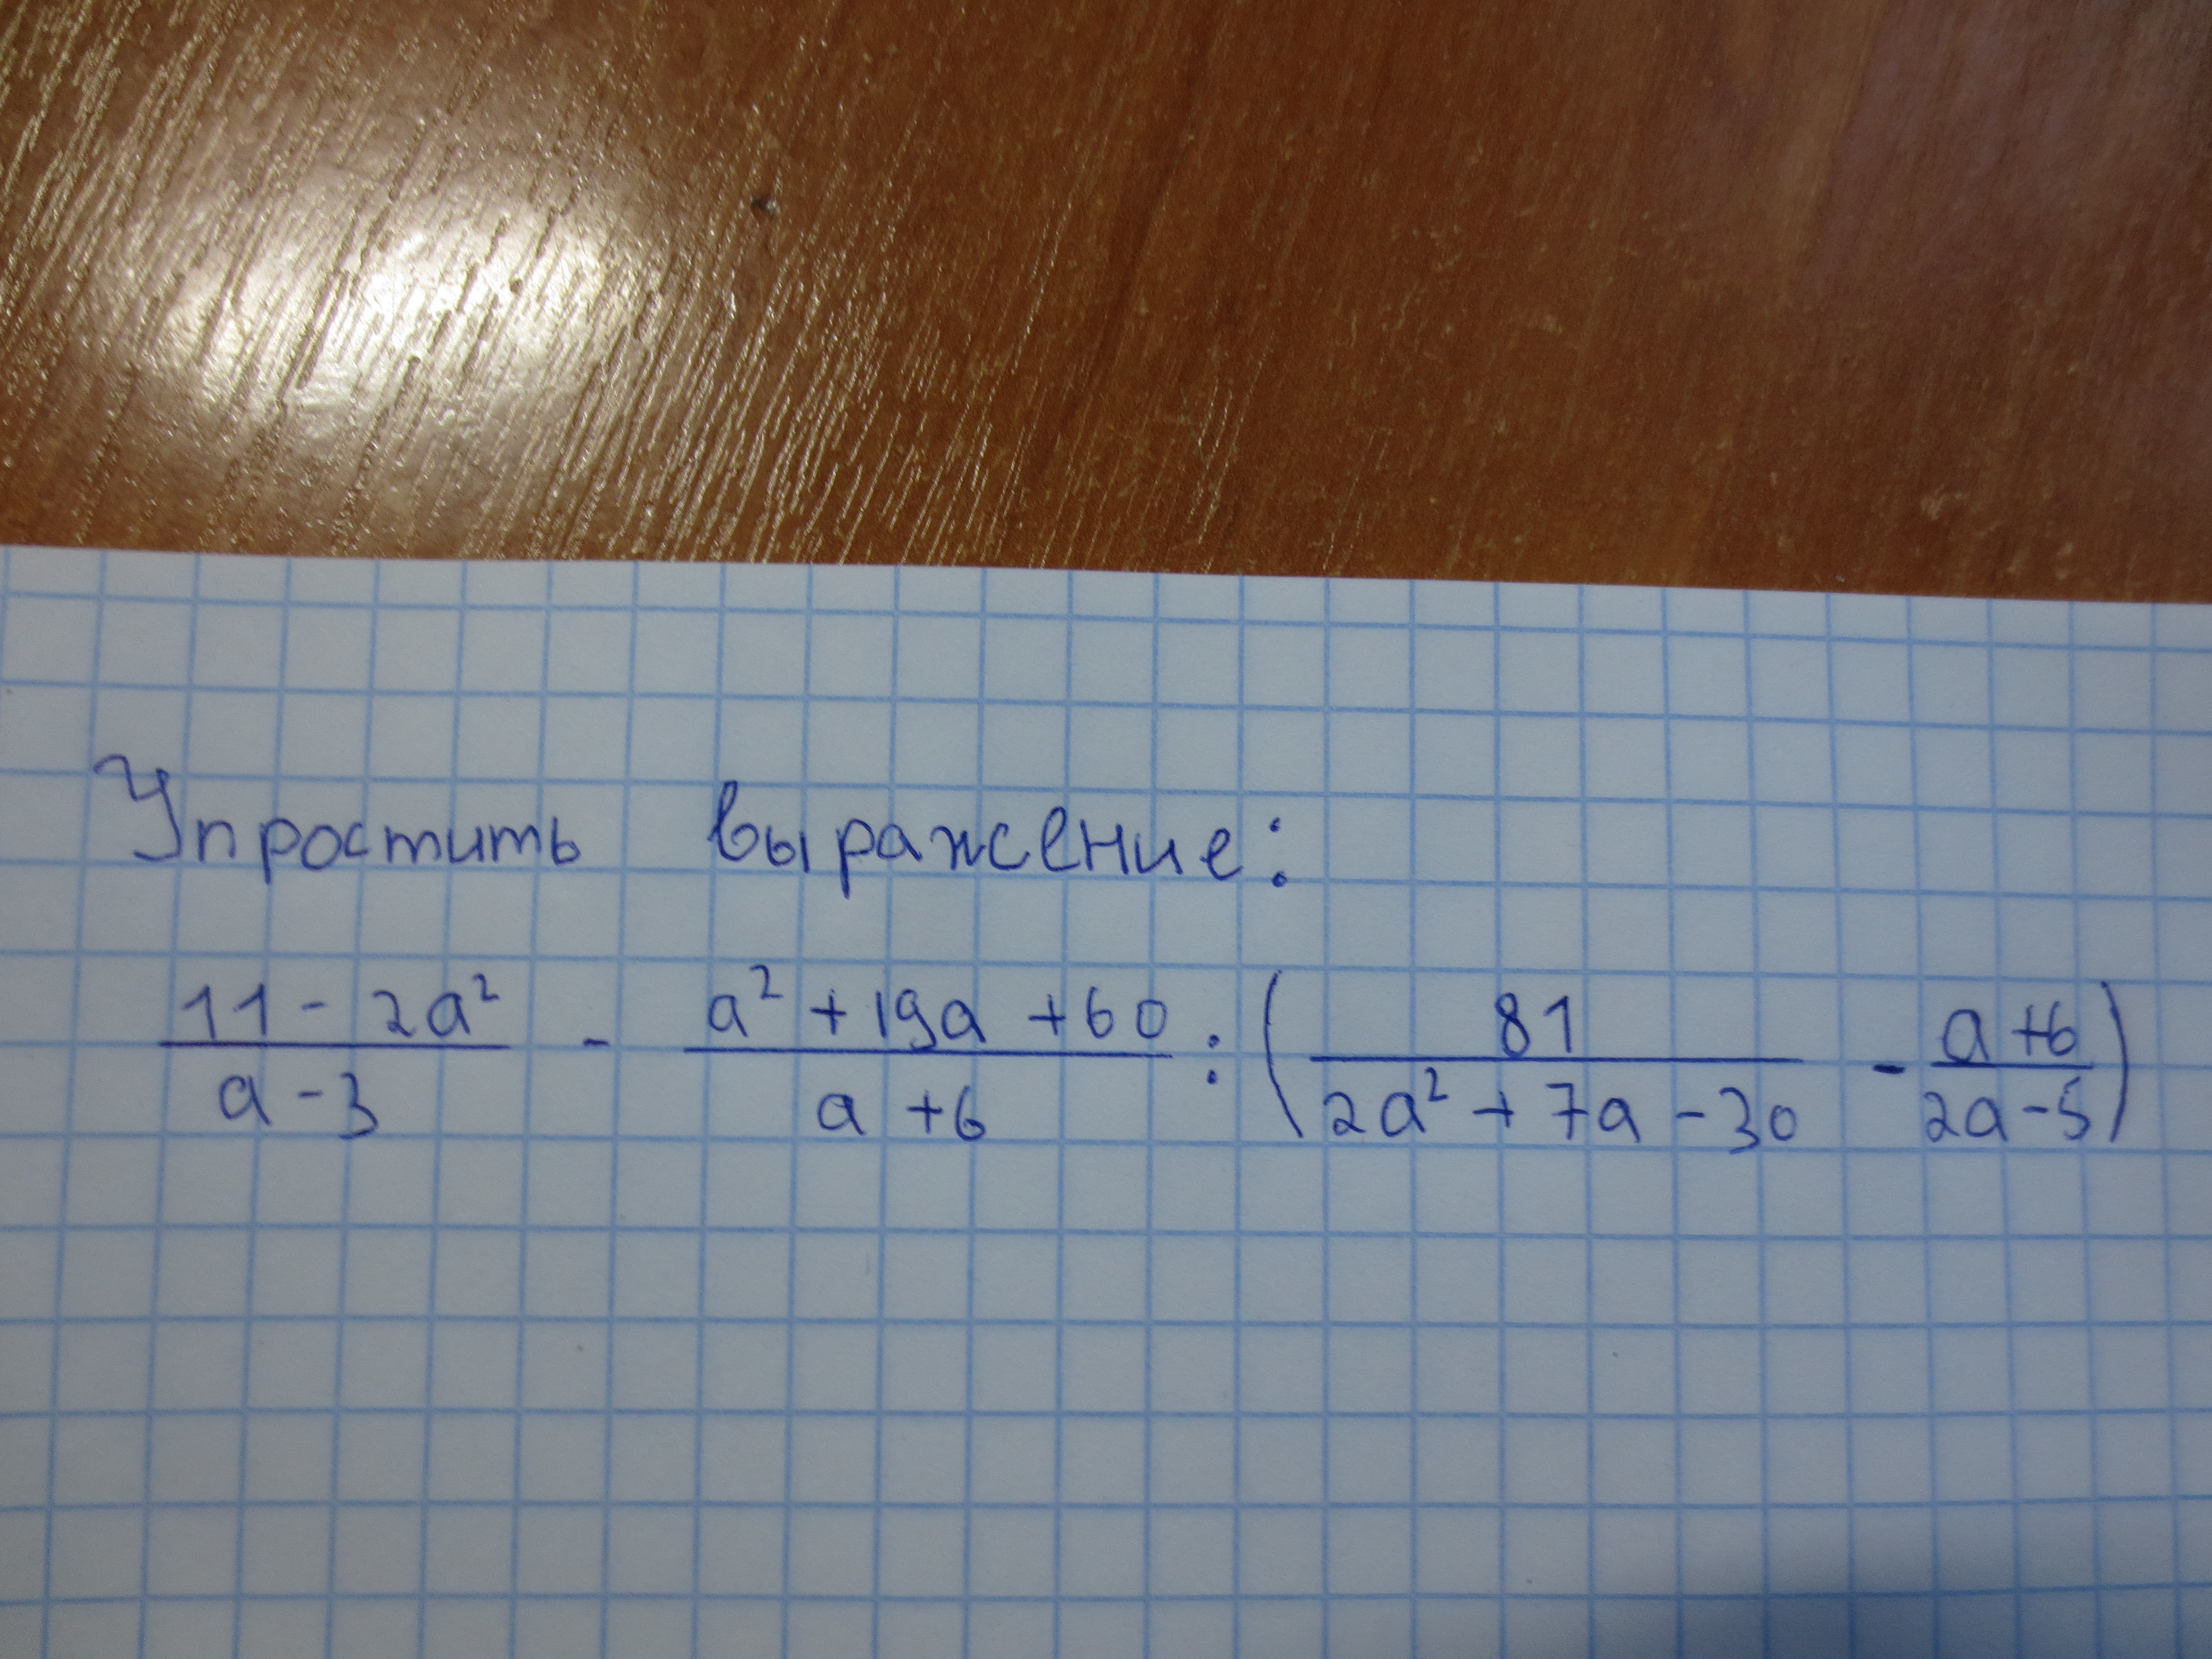 Упростить выражение:
\frac{11 - 2a^2}{a - 3} - \frac{a^2 + 19a + 60}{a + 6} : \left( \frac{81}{2a^2 + 7a - 30} - \frac{a + 6}{2a - 5} \right)